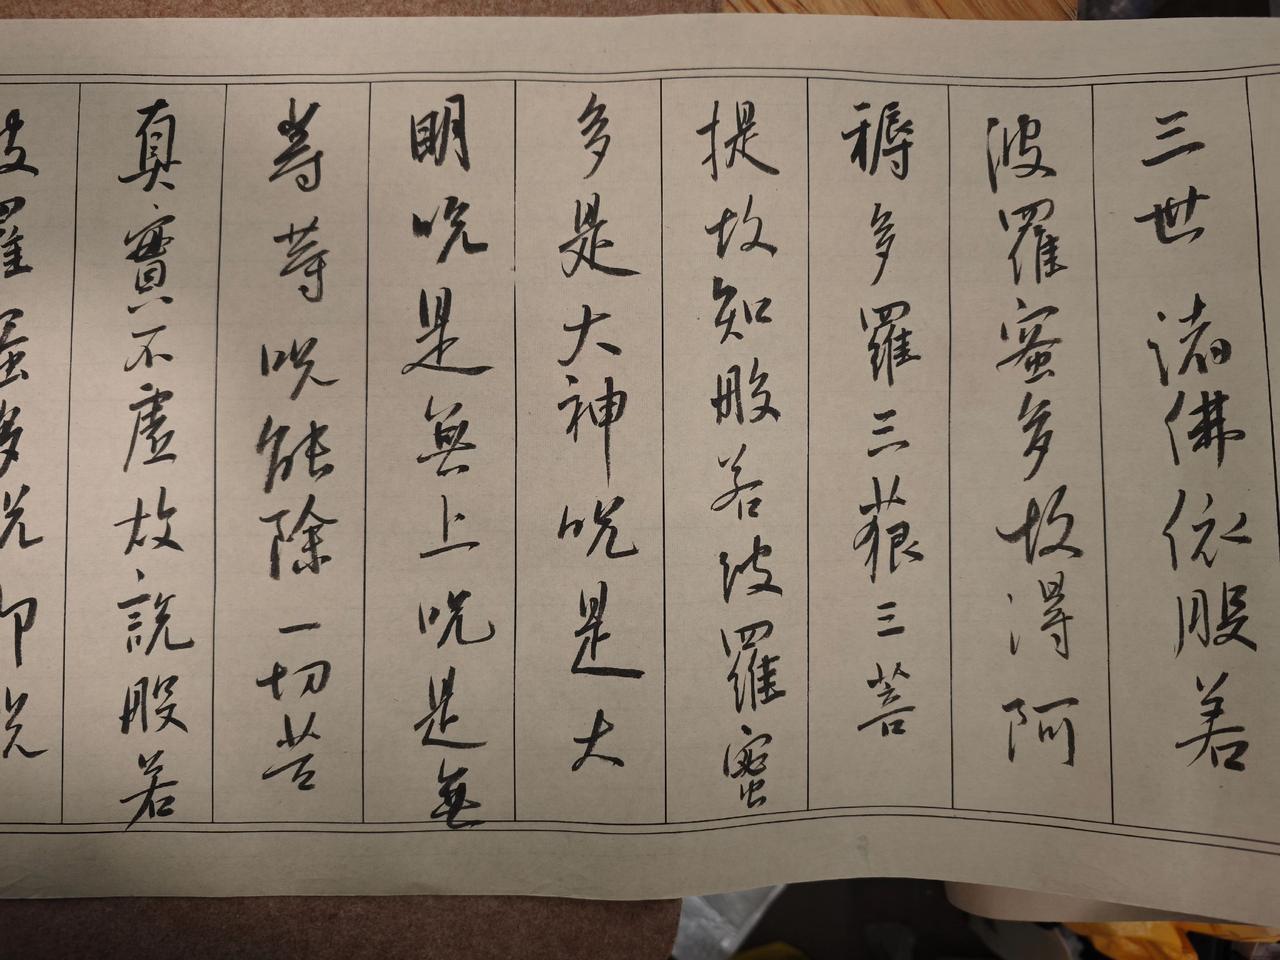 三世諸佛依般若
波羅蜜多故得阿
耨多羅三藐三菩
提故知般若波羅蜜
多是大神咒是大
明咒是無上咒是無
等等咒能除一切苦
真實不虛故說般若
波羅蜜多咒即說